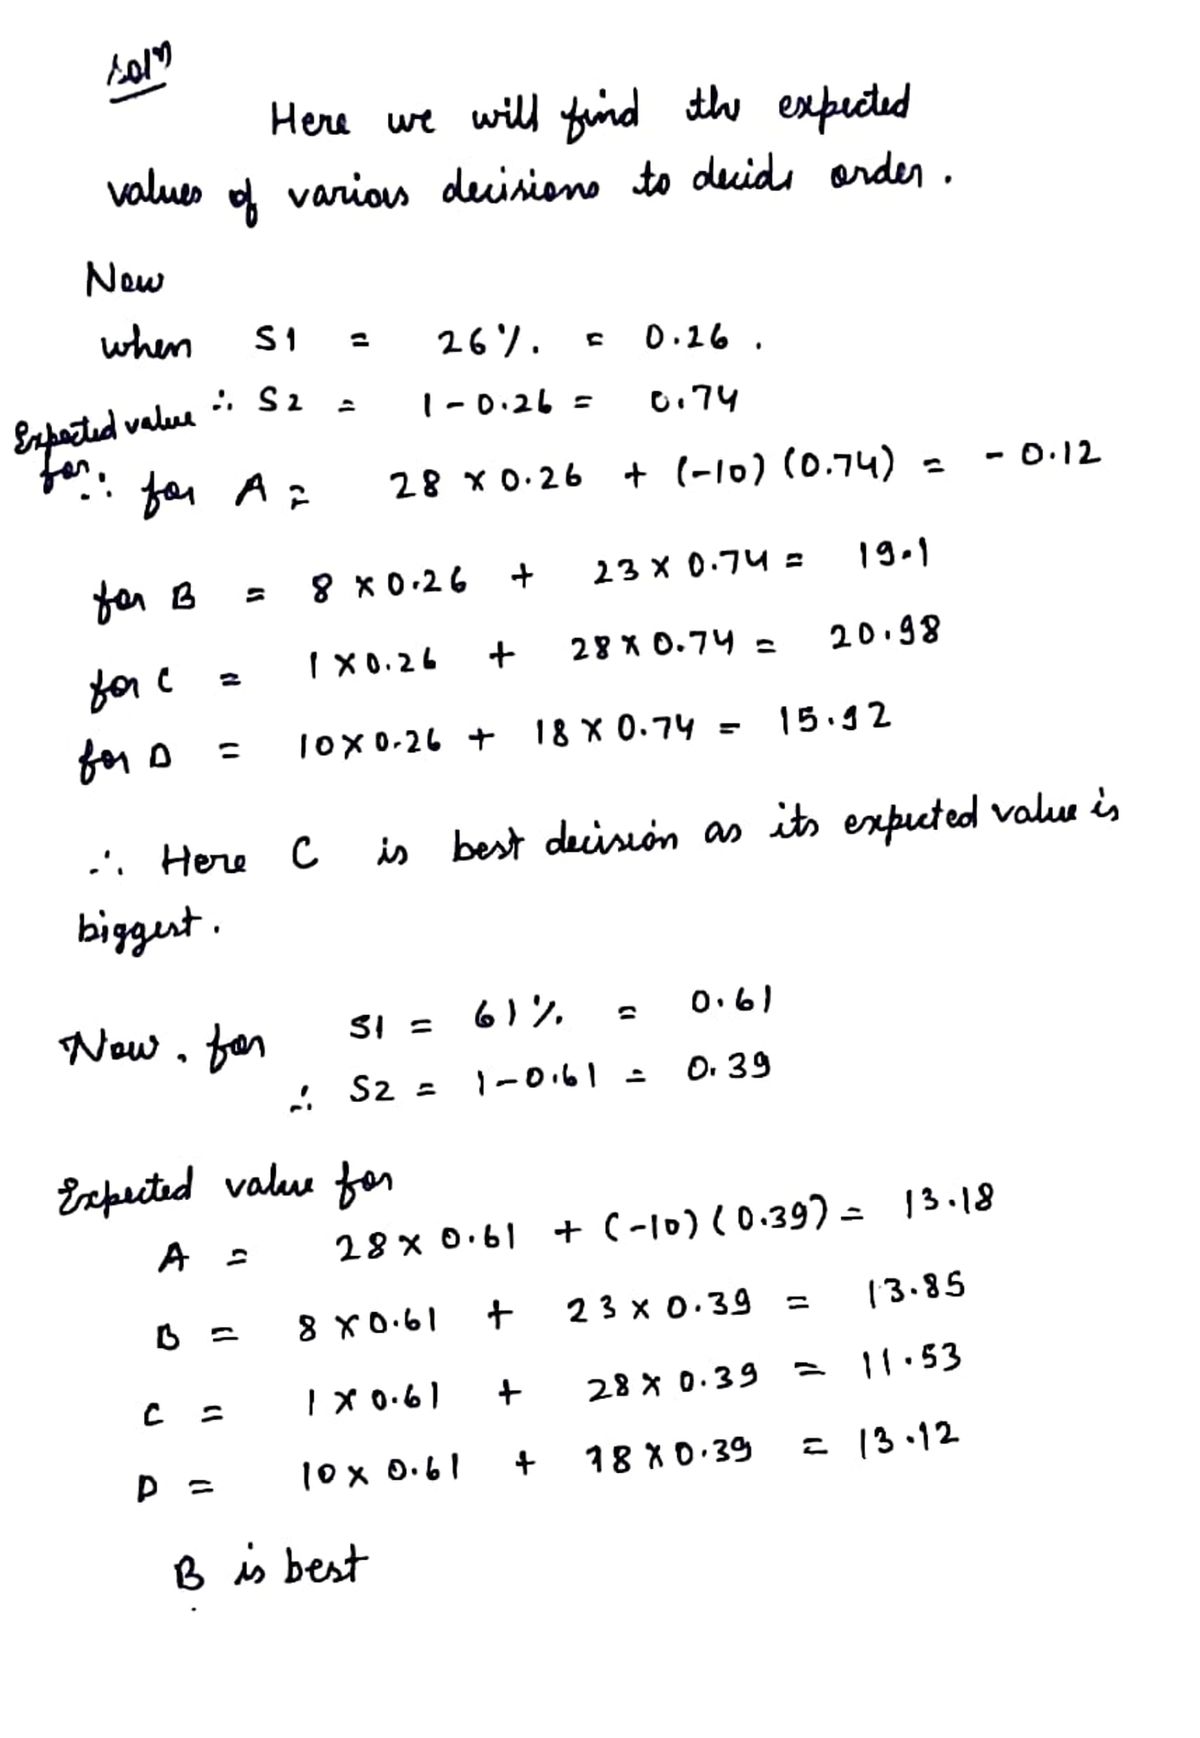 Soln
Here we will find the expected
values of various decisions to decide order.
Now
when S1 = 26%. = 0.26.
∴ S2 = 1-0.26 = 0.74
Expected value
for
∴ for A = 28 x 0.26 + (-10) (0.74) = - 0.12
for B = 8 x 0.26 + 23 x 0.74 = 19.1
for C = 1 x 0.26 + 28 x 0.74 = 20.98
for D = 10 x 0.26 + 18 x 0.74 = 15.92
∴ Here C is best decision as its expected value is
biggest.
Now, for S1 = 61%. = 0.61
∴ S2 = 1-0.61 = 0.39
Expected value for
A = 28 x 0.61 + (-10) (0.39) = 13.18
B = 8 x 0.61 + 23 x 0.39 = 13.85
C = 1 x 0.61 + 28 x 0.39 = 11.53
D = 10 x 0.61 + 18 x 0.39 = 13.12
B is best